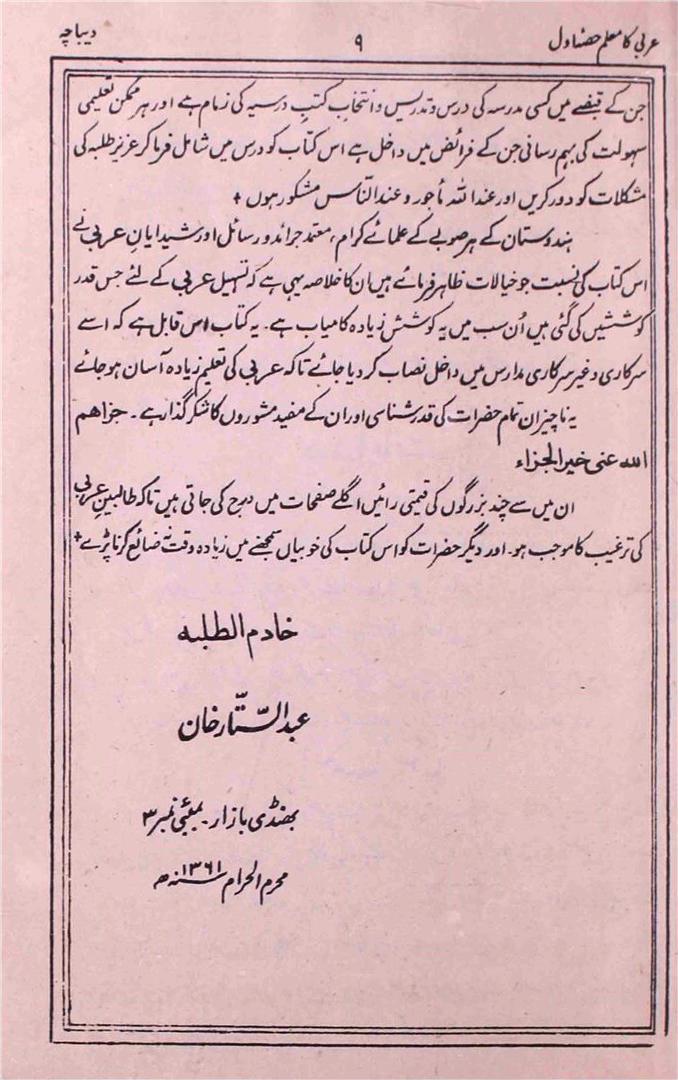 عربی کا معلم حصہ اول
۹
دیباچہ
جن کے قبضے میں کسی مدرسہ کی درس و تدریس و انتخاب کتب درسیہ کی زمام ہے اور ہر ممکن تعلیمی
سہولت کی بہم رسانی جن کے فرائض میں داخل ہے اس کتاب کو درس میں شامل فرما کر عزیز طلبہ کی
مشکلات کو دور کریں اور عند اللہ مأجور و عند الناس مشکور ہوں +
ہندوستان کے ہر صوبے کے علمائے کرام، معتمد جرائد و رسائل اور شیدایان عربی نے
اس کتاب کی نسبت جو خیالات ظاہر فرمائے ہیں ان کا خلاصہ یہی ہے کہ تسہیل عربی کے لئے جس قدر
کوششیں کی گئی ہیں اُن سب میں یہ کوشش زیادہ کامیاب ہے۔ یہ کتاب اس قابل ہے کہ اسے
سرکاری و غیر سرکاری مدارس میں داخل نصاب کر دیا جائے تاکہ عربی کی تعلیم زیادہ آسان ہو جائے
یہ ناچیز ان تمام حضرات کی قدر شناسی اور ان کے مفید مشوروں کا شکر گذار ہے۔ جزاھم
اللہ عنی خیر الجزاء
ان میں سے چند بزرگوں کی قیمتی رائیں اگلے صفحات میں درج کی جاتی ہیں تاکہ طالبین عربی
کی ترغیب کا موجب ہو۔ اور دیگر حضرات کو اس کتاب کی خوبیاں سمجھنے میں زیادہ وقت نہ ضائع کرنا پڑے +
خادم الطلبہ
عبد السّتّار خان
بھنڈی بازار۔ بمبئی نمبر ۳
محرم الحرام سنہ ۱۳۶۱ھ